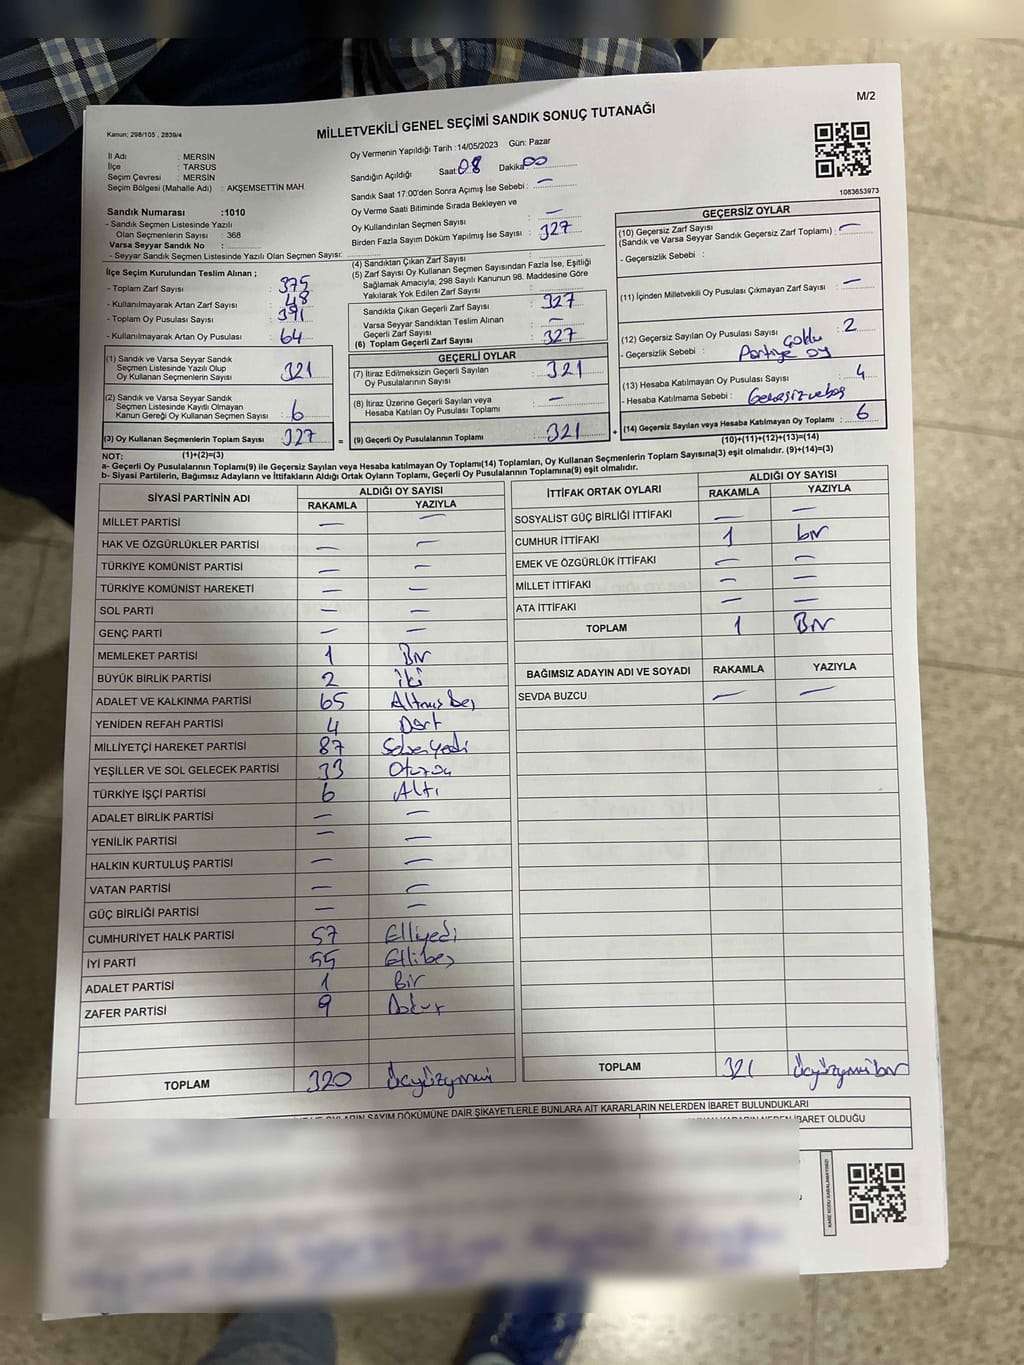 M/2
Kanun; 298/105 , 2839/4
MİLLETVEKİLİ GENEL SEÇİMİ SANDIK SONUÇ TUTANAĞI
İl Adı : MERSİN
İlçe : TARSUS
Seçim Çevresi : MERSİN
Seçim Bölgesi (Mahalle Adı) : AKŞEMSETTİN MAH.
Sandık Numarası :1010
- Sandık Seçmen Listesinde Yazılı
Olan Seçmenlerin Sayısı : 368
Varsa Seyyar Sandık No :
- Seyyar Seçmen Listesinde Yazılı Olan Seçmen Sayısı:
Oy Vermenin Yapıldığı Tarih :14/05/2023 Gün: Pazar
Sandığın Açıldığı Saat: 08 Dakika: 00
Sandık Saat 17:00'den Sonra Açımış İse Sebebi : —
Oy Verme Saati Bitiminde Sırada Bekleyen ve
Oy Kullandırılan Seçmen Sayısı : —
Birden Fazla Sayım Döküm Yapılmış İse Sayısı : 327
1083653973
İlçe Seçim Kurulundan Teslim Alınan ;
- Toplam Zarf Sayısı : 375
- Kullanılmayarak Artan Zarf Sayısı : 48
- Toplam Oy Pusulası Sayısı : 391
- Kullanılmayarak Artan Oy Pusulası : 64
(1) Sandık ve Varsa Seyyar Sandık
Seçmen Listesinde Yazılı Olup
Oy Kullanan Seçmenlerin Sayısı : 321
(2) Sandık ve Varsa Seyyar Sandık
Seçmen Listesinde Kayıtlı Olmayan
Kanun Gereği Oy Kullanan Seçmen Sayısı : 6
(3) Oy Kullanan Seçmenlerin Toplam Sayısı : 327
(1)+(2)=(3)
(4) Sandıktan Çıkan Zarf Sayısı :
(5) Zarf Sayısı Oy Kullanan Seçmen Sayısından Fazla İse, Eşitliği
Sağlamak Amacıyla, 298 Sayılı Kanunun 98. Maddesine Göre
Yakılarak Yok Edilen Zarf Sayısı :
Sandıkta Çıkan Geçerli Zarf Sayısı : 327
Varsa Seyyar Sandıktan Teslim Alınan
Geçerli Zarf Sayısı : —
(6) Toplam Geçerli Zarf Sayısı : 327
GEÇERLİ OYLAR
(7) İtiraz Edilmeksizin Geçerli Sayılan
Oy Pusulalarının Sayısı : 321
(8) İtiraz Üzerine Geçerli Sayılan veya
Hesaba Katılan Oy Pusulası Toplamı : —
= (9) Geçerli Oy Pusulalarının Toplamı : 321 +
GEÇERSİZ OYLAR
(10) Geçersiz Zarf Sayısı
(Sandık ve Varsa Seyyar Sandık Geçersiz Zarf Toplamı) : —
- Geçersizlik Sebebi :
(11) İçinden Milletvekili Oy Pusulası Çıkmayan Zarf Sayısı : —
(12) Geçersiz Sayılan Oy Pusulası Sayısı : 2
- Geçersizlik Sebebi : Çoklu
Partiye oy
(13) Hesaba Katılmayan Oy Pusulası Sayısı : 4
- Hesaba Katılmama Sebebi :
(14) Geçersiz Sayılan veya Hesaba Katılmayan Oy Toplamı : 6
(10)+(11)+(12)+(13)=(14)
NOT:
a- Geçerli Oy Pusulaları Toplamı(9) ile Geçersiz Sayılan veya Hesaba katılmayan Oy Toplamı(14) Toplamları, Oy Kullanan Seçmenlerin Toplam Sayısına(3) eşit olmalıdır. (9)+(14)=(3)
b- Siyasi Partilerin, Bağımsız Adayların ve İttifakların Aldığı Ortak Oyların Toplamı, Geçerli Oy Pusulalarının Toplamına(9) eşit olmalıdır.
SİYASİ PARTİNİN ADI ALDIĞI OY SAYISI
RAKAMLA YAZIYLA
MİLLET PARTİSİ — —
HAK VE ÖZGÜRLÜKLER PARTİSİ — —
TÜRKİYE KOMÜNİST PARTİSİ — —
TÜRKİYE KOMÜNİST HAREKETİ — —
SOL PARTİ — —
GENÇ PARTİ — —
MEMLEKET PARTİSİ 1 Bir
BÜYÜK BİRLİK PARTİSİ 2 iki
ADALET VE KALKINMA PARTİSİ 65 Altmış beş
YENİDEN REFAH PARTİSİ 4 Dört
MİLLİYETÇİ HAREKET PARTİSİ 87 Seksenyedi
YEŞİLLER VE SOL GELECEK PARTİSİ 33 Otuzüç
TÜRKİYE İŞÇİ PARTİSİ 6 Altı
ADALET BİRLİK PARTİSİ — —
YENİLİK PARTİSİ — —
HALKIN KURTULUŞ PARTİSİ — —
VATAN PARTİSİ — —
GÜÇ BİRLİĞİ PARTİSİ — —
CUMHURİYET HALK PARTİSİ 57 Elliyedi
İYİ PARTİ 55 Ellibeş
ADALET PARTİSİ 1 Bir
ZAFER PARTİSİ 9 Dokuz
TOPLAM 320 Üçyüzyirmi
İTTİFAK ORTAK OYLARI ALDIĞI OY SAYISI
RAKAMLA YAZIYLA
SOSYALİST GÜÇ BİRLİĞİ İTTİFAKI — —
CUMHUR İTTİFAKI 1 bir
EMEK VE ÖZGÜRLÜK İTTİFAKI — —
MİLLET İTTİFAKI — —
ATA İTTİFAKI — —
TOPLAM 1 Bir
BAĞIMSIZ ADAYIN ADI VE SOYADI RAKAMLA YAZIYLA
SEVDA BUZCU — —
TOPLAM 321 Üçyüzyirmibir
OYLARIN SAYIM DÖKÜMÜNE DAİR ŞİKAYETLERLE BUNLARA AİT KARARLARIN NELERDEN İBARET BULUNDUKLARI
KARARIN NEDEN İBARET OLDUĞU